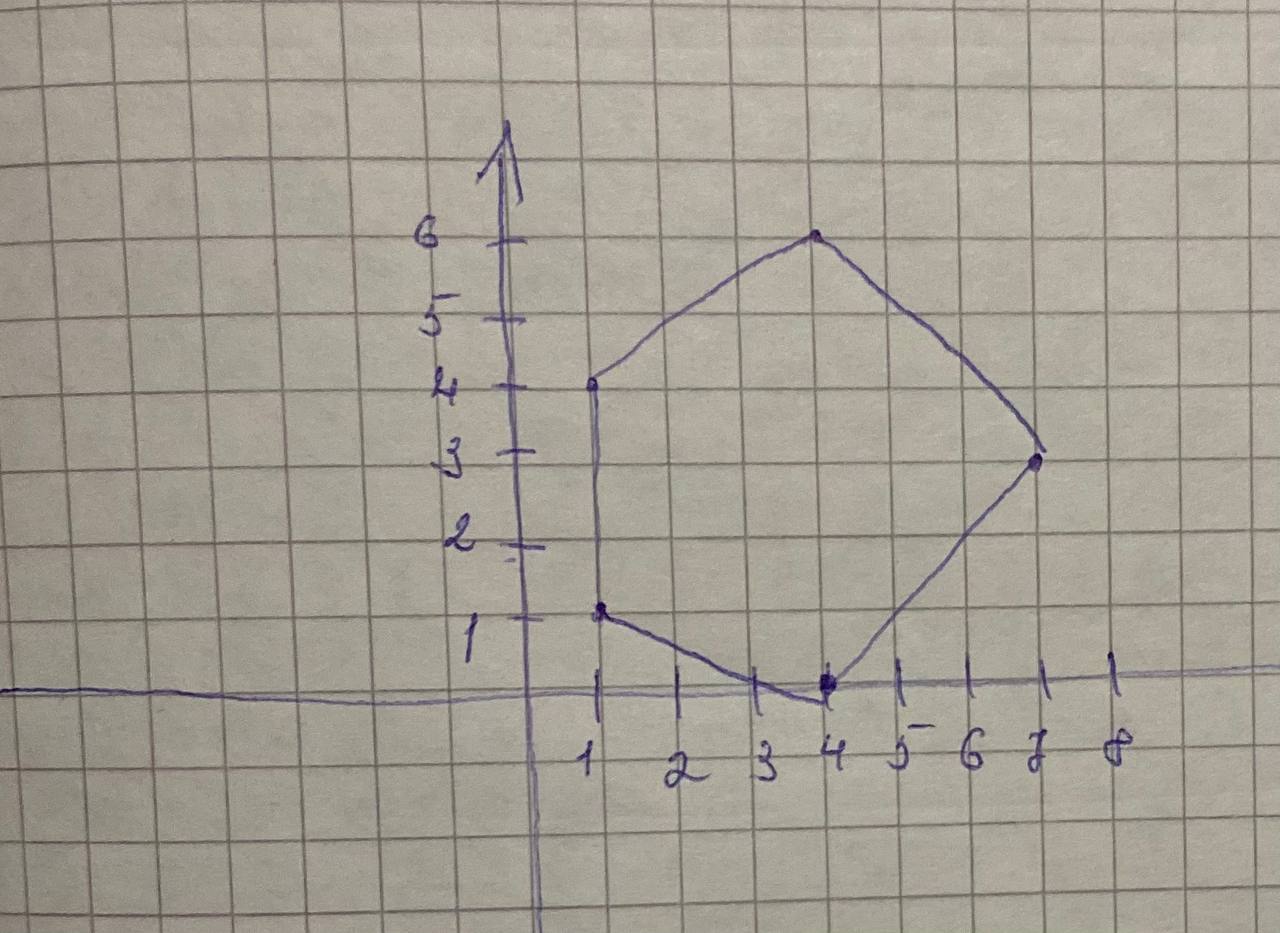 6
5
4
3
2
1
1 2 3 4 5 6 7 8